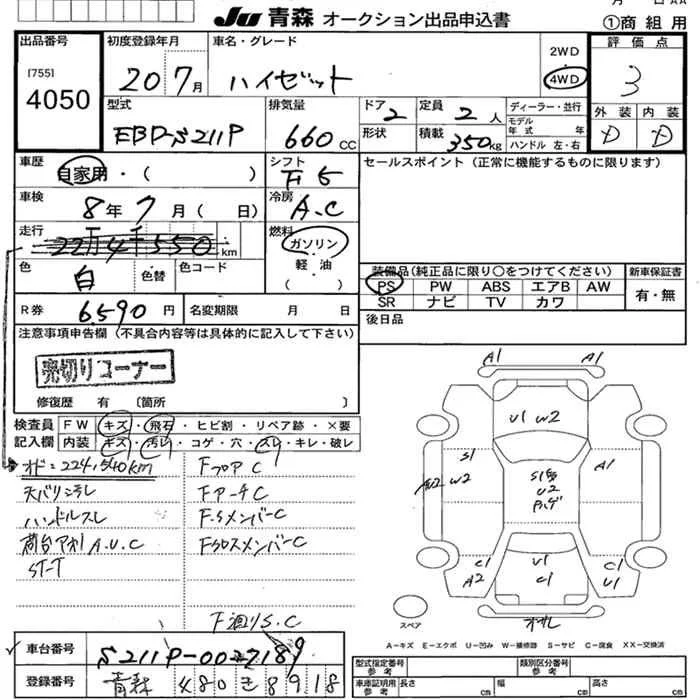 JU 青森 オークション出品申込書
①商組用
出品番号
[755]
4050
初度登録年月
20 7月
車名・グレード
ハイゼット
2WD
4WD
評価点
3
外装 内装
D D
型式
EBD-S211P
排気量
660 CC
ドア 2
形状
定員 2 人
積載 350kg
ディーラー・並行
モデル
年式 年
ハンドル 左・右
車歴
自家用・( )
シフト
F5
セールスポイント(正常に機能するものに限ります)
車検
8年7月( 日)
冷房
A.C
走行
22万4千550km
燃料
ガソリン
軽油
( )
色
白
色替
色コード
R券 6,590 円
名変期限 月 日
装備品(純正品に限り○をつけてください)
新車保証書
PS PW ABS エアB AW
SR ナビ TV カワ
有・無
後日品
注意事項申告欄(不具合内容等は具体的に記入して下さい)
売切りコーナー
修復歴 有 [箇所 ]
検査員 FW キズ・飛石・ヒビ割・リペア跡・×要
記入欄 内装 キズ・汚れ・コゲ・穴・スレ・キレ・破レ
オド:224,540km
天バリヨゴレ
ハンドルスレ
荷台アオリA.U.C
ST-T
FフロアC
F.アーチC
F.SメンバーC
FクロスメンバーC
F廻りS.C
A1 A1
U1 W2
S1
W2
A1
U2
C1
A2
U1
C1
C1
U1
スペア
A=キズ E=エクボ U=凹み W=補修跡 S=サビ C=腐食 XX=交換済
車台番号
S211P-0027189
登録番号
青森 480 き 8918
型式指定番号
参考
類別区分番号
参考
車庫証明用
参考
長さ cm
幅 cm
高さ cm